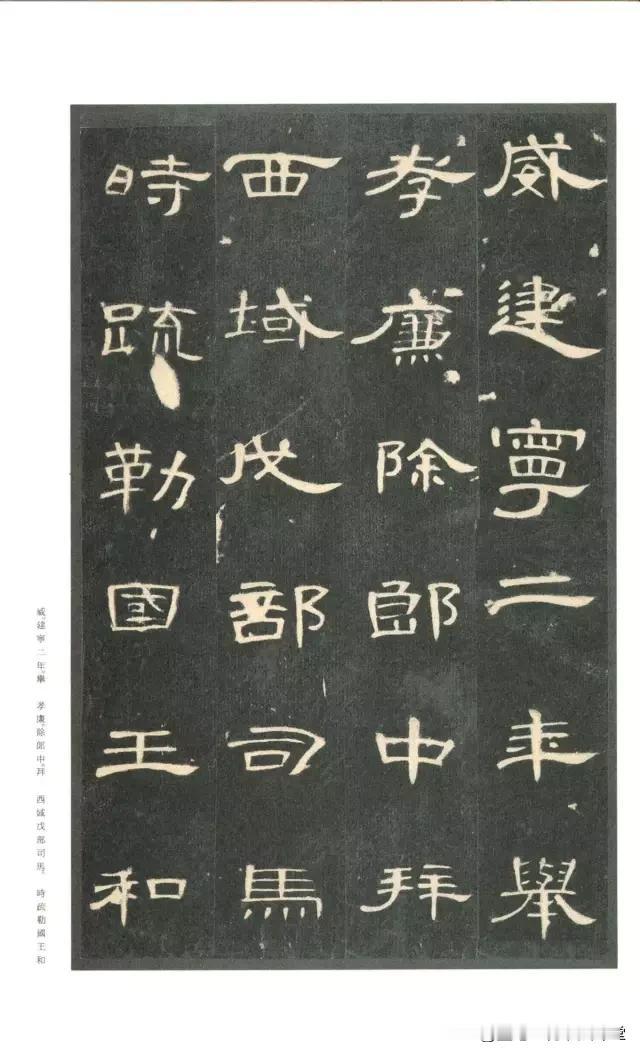 威建寧二年舉
孝廉除郎中拜
西域戊部司馬
時疏勒國王和
威。建寧二年。舉 孝廉。除郎中。拜 西域戊部司馬。 時疏勒國王和
堂